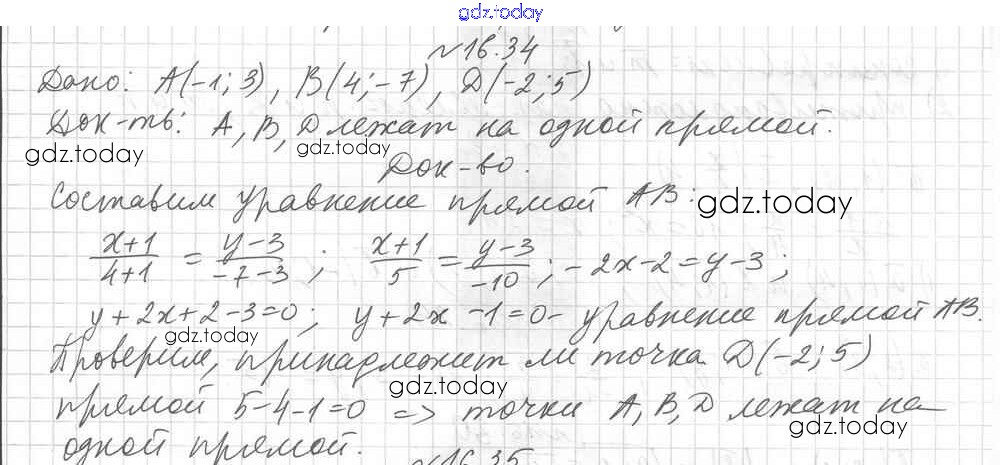 gdz.today
№16.34
Дано: A(-1; 3), B(4; -7), D(-2; 5)
Док-ть: A, B, D лежат на одной прямой.
gdz.today gdz.today
Док-во.
Составим уравнение прямой AB: gdz.today
(x+1)/(4+1) = (y-3)/(-7-3); (x+1)/5 = (y-3)/(-10); -2x-2=y-3;
y+2x+2-3=0; y+2x-1=0- уравнение прямой AB.
gdz.today
Проверим, принадлежит ли точка D(-2; 5)
gdz.today
прямой 5-4-1=0 => точки A, B, D лежат на
gdz.today
одной прямой.
№16.35